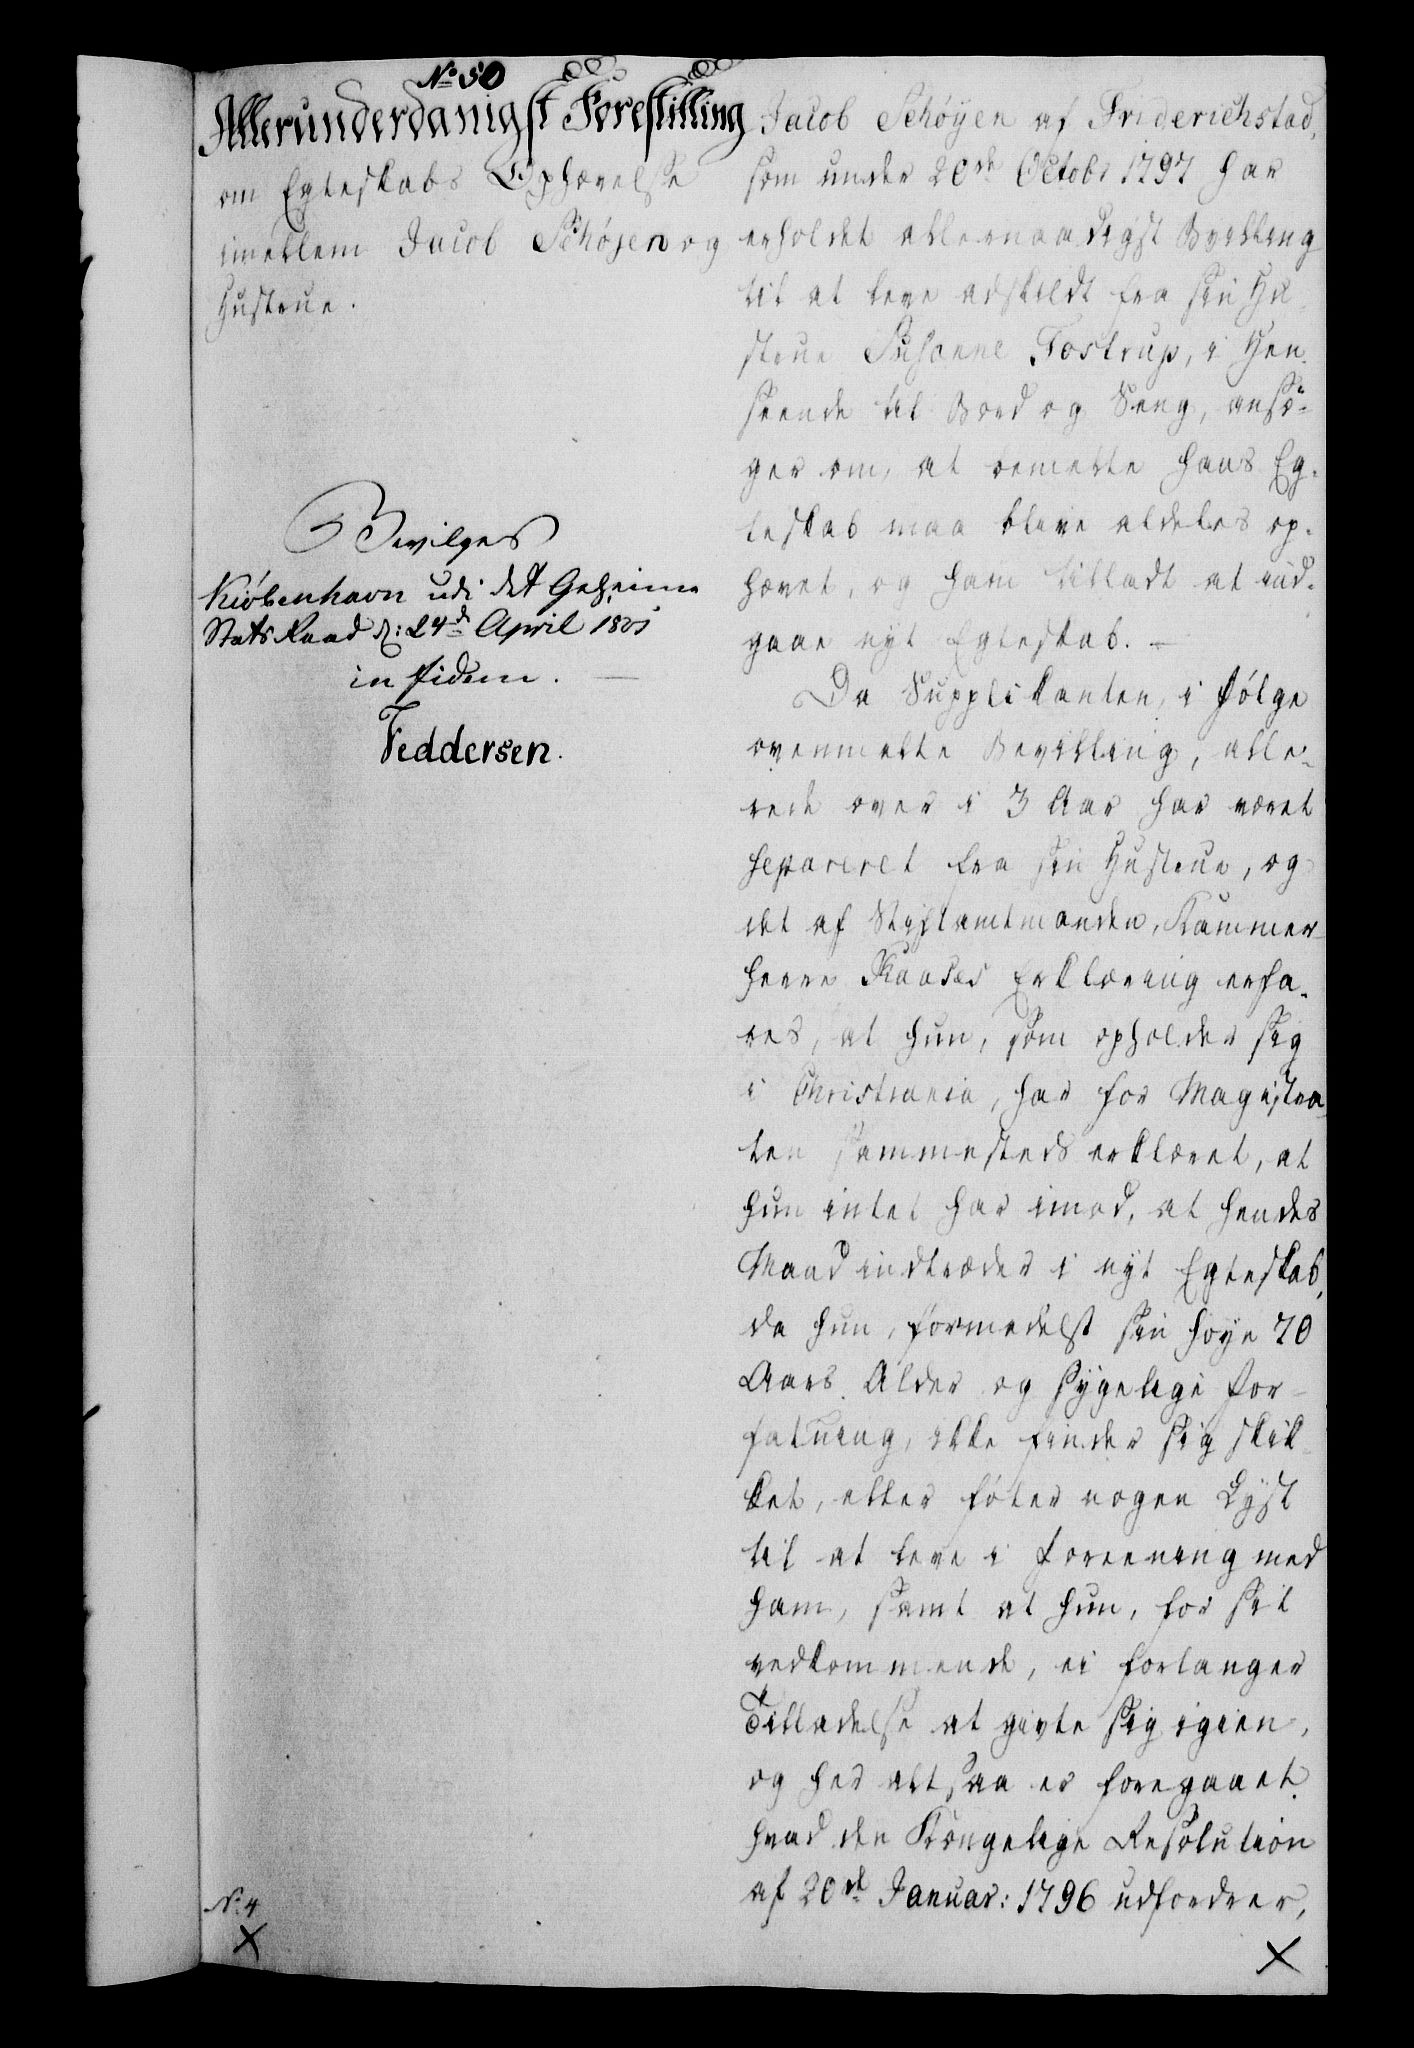 No 50
Allerunderdanigst Forestilling
om Egteskabs Ophævelse
imellem Jacob Schøyen og
Hustrue.
Bevilges
Kiöbenhavn udi det Geheime
Stats Raad d: 24de April 1801
in fidem.
Feddersen.
No 4
Jacob Schøyen af Friderichstad,
som under 20de Octobr 1797 har
erholdet allernaadigst Bevilling
til at leve adskildt fra sin Hu
strue Susanne Tostrup, i Hen-
seende til Bord og Seng, ansø-
ger om, at bemelte hans Eg-
teskab maa blive aldeles op-
hævet, og ham tilladt at ind-
gaae nyt Egteskab. –
Da Supplikanten, i følge
ovenmelte Bevilling, alle-
rede over i 3 Aar har været
separeret fra sin Hustrue, og
det af Stiftamtmanden, Kammer-
herre Kaases Erklæring erfa-
res, at hun, som opholder sig
i Christiania, har for Magistra-
ten sammesteds erklæret, at
hun intet har imod, at hendes
Mand indtræder i nyt Egteskab,
da hun, formedelst sin høye 70
Aars Alder og sygelige For-
fatning, ikke finder sig skik-
ket, eller föler nogen Lyst
til at leve i Foreening med
ham, samt at hun, for sit
vedkommende, ei forlanger
Tilladelse at givte sig igien,
og her altsaa er foregaaet
hvad den Kongelige Resolution
af 20de Januar: 1796 udfordrer,